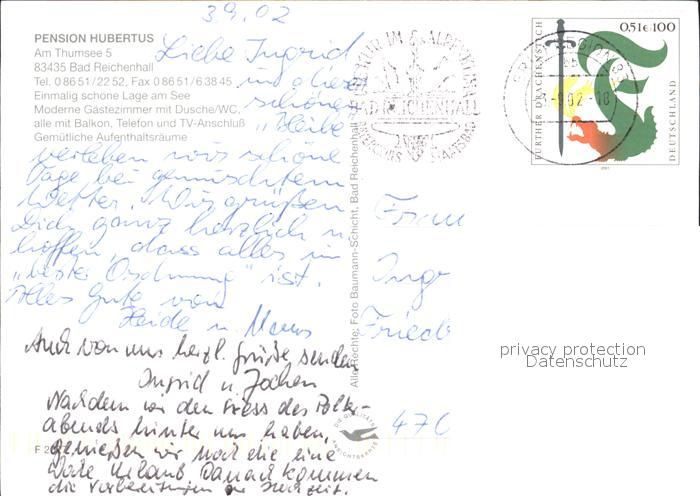 3.9.02
PENSION HUBERTUS
Am Thumsee 5
83435 Bad Reichenhall
Tel. 0 86 51 / 22 52, Fax 0 86 51 / 6 38 45
Einmalig schöne Lage am See
Moderne Gästezimmer mit Dusche/WC,
alle mit Balkon, Telefon und TV-Anschluß
Gemütliche Aufenthaltsräume
Liebe Ingrid
in dieser
schönen
"Bleibe"
verleben wir schöne
Tage bei gemischtem
Wetter. Wir grüßen
Dich ganz herzlich u.
hoffen, dass alles in
"bester Ordnung" ist.
Alles Gute von
Heide u.
Auch von uns herzl. Grüße senden
Ingrid u. Jochen
Nachdem wir den Stress des
abends hinter uns haben,
genießen wir noch die eine
Woche Urlaub. Danach kommen
die Vorbereitungen
F 20
Alle Rechte: Foto Baumann-Schicht, Bad Reichenhall
BAD REICHENHALL
STAATSBAD
02-18
FURTHER DRACHENSTICH
0,51€ 100
DEUTSCHLAND
2001
Frau
Ingr
Friedb
470
DIE QUALITÄTS
ANSICHTSKARTE
privacy protection
Datenschutz